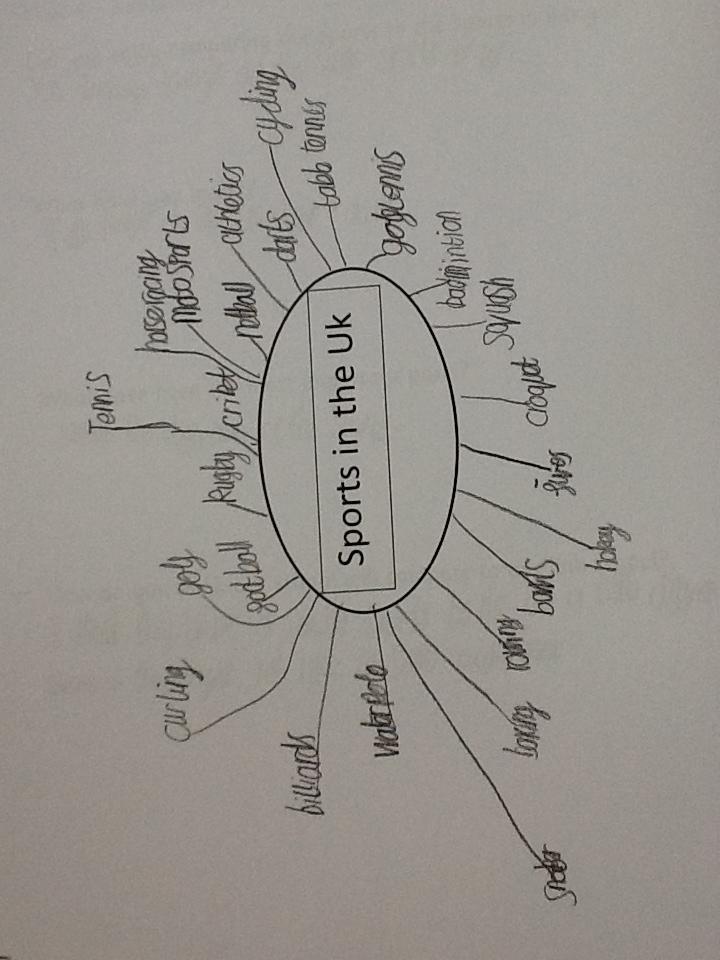 Sports in the Uk
Tennis
horseracing
MotoSports
athletics
cycling
darts
netball
table tennis
badmintion
squash
croquet
fives
hokey
bowls
rowing
boxing
snooker
Water Polo
billiards
curling
golf
football
Rugby
criket